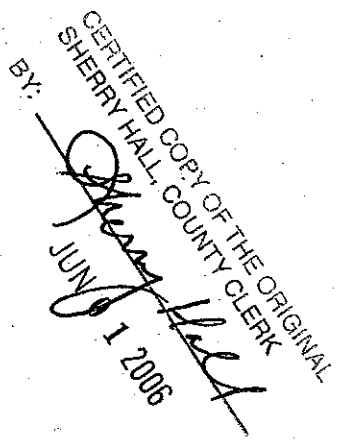 CERTIFIED COPY OF THE ORIGINAL
SHERRY HALL, COUNTY CLERK
BY: Sherry Hall
JUN 1 2006